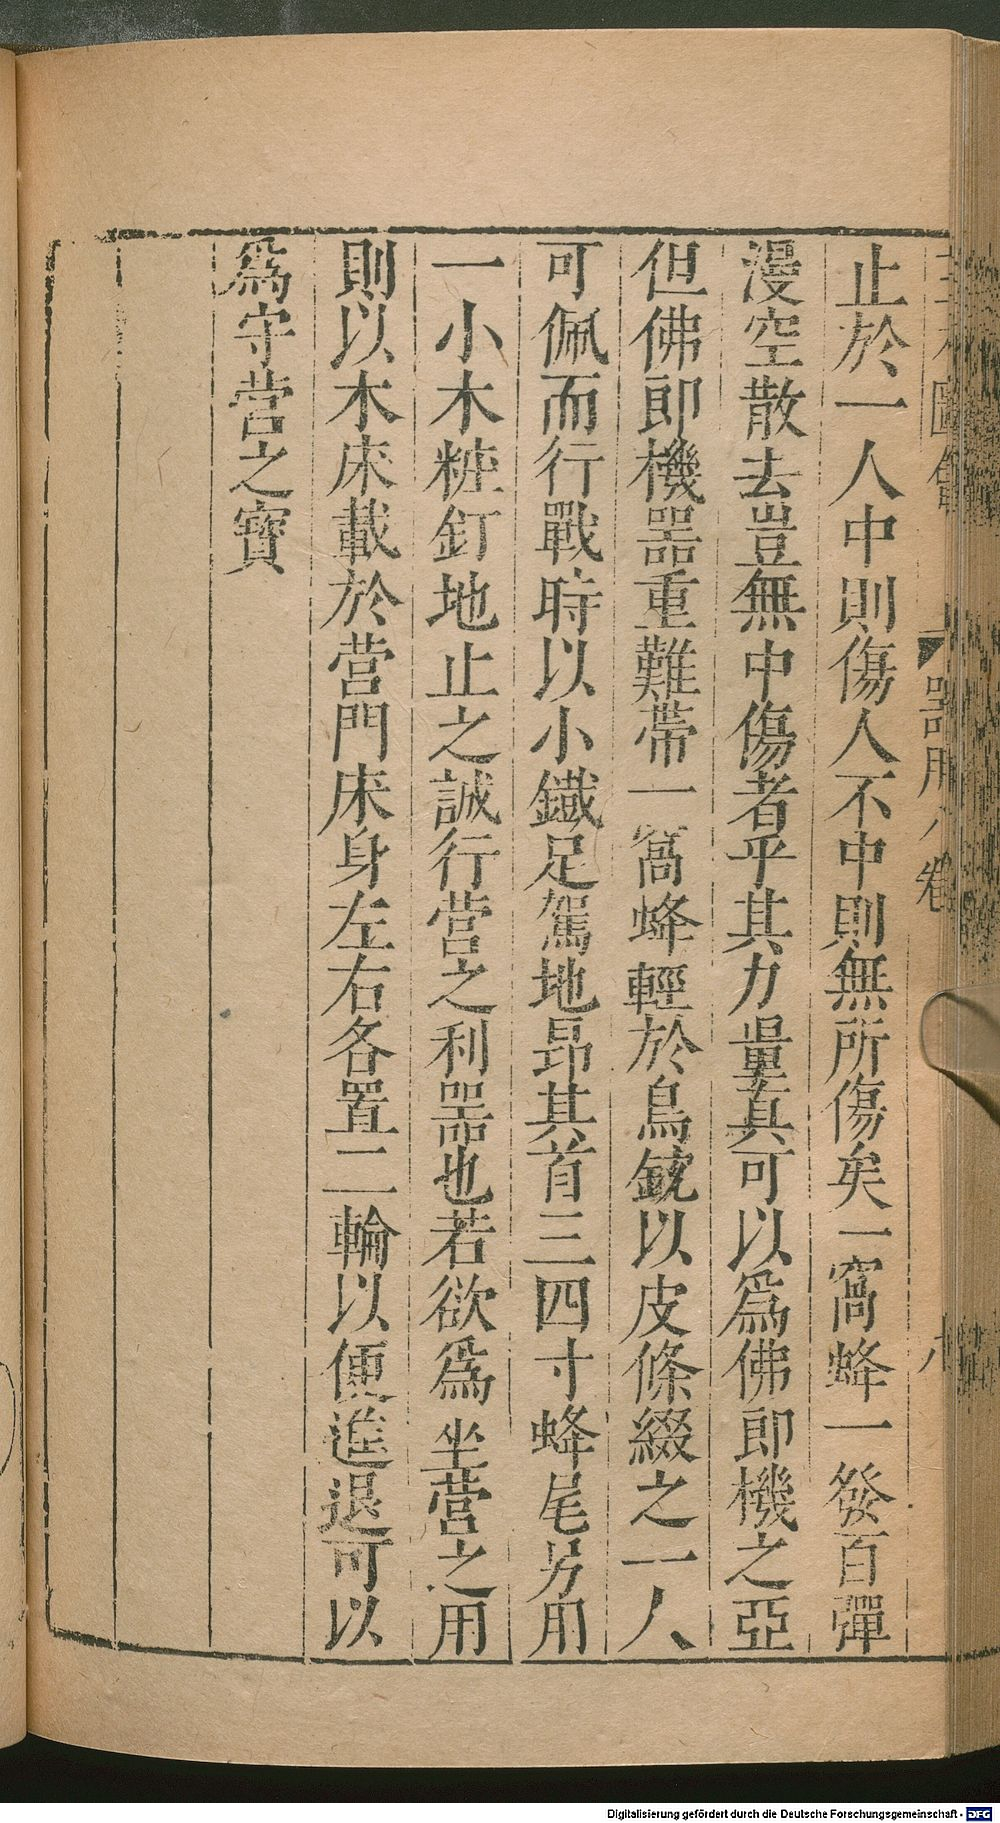 止於一人中則傷人不中則無所傷矣一窩蜂一發百彈
漫空散去豈無中傷者乎其力量真可以為佛郎機之亞
但佛郎機器重難帶一窩蜂輕於鳥銃以皮條綴之一人
可佩而行戰時以小鐵足駕地昂其首三四寸蜂尾另用
一小木樁釘地止之誠行營之利器也若欲為坐營之用
則以木床載於營門床身左右各置二輪以便進退可以
為守營之寶
器用八卷
Digitalisierung gefördert durch die Deutsche Forschungsgemeinschaft - DFG